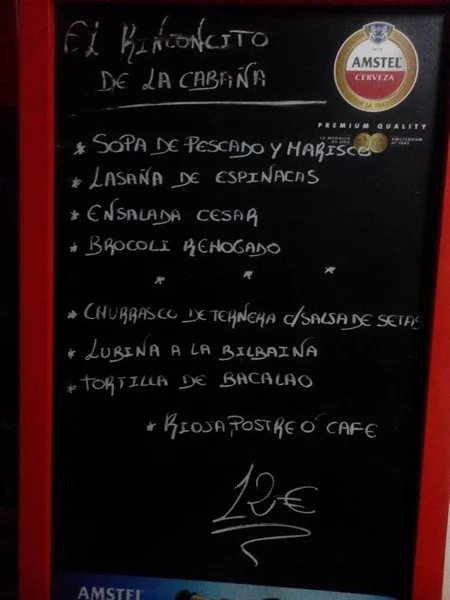 EL RINCONCITO
DE LA CABAÑA
1870
AMSTEL
CERVEZA
PREMIUM QUALITY
* SOPA DE PESCADO Y MARISCO
* LASAÑA DE ESPINACAS
* ENSALADA CESAR
* BROCOLI REHOGADO
* * *
* CHURRASCO DE TERNERA C/SALSA DE SETAS
* LUBINA A LA BILBAINA
* TORTILLA DE BACALAO
* RIOJA, POSTRE Ó CAFE
12€
AMSTEL